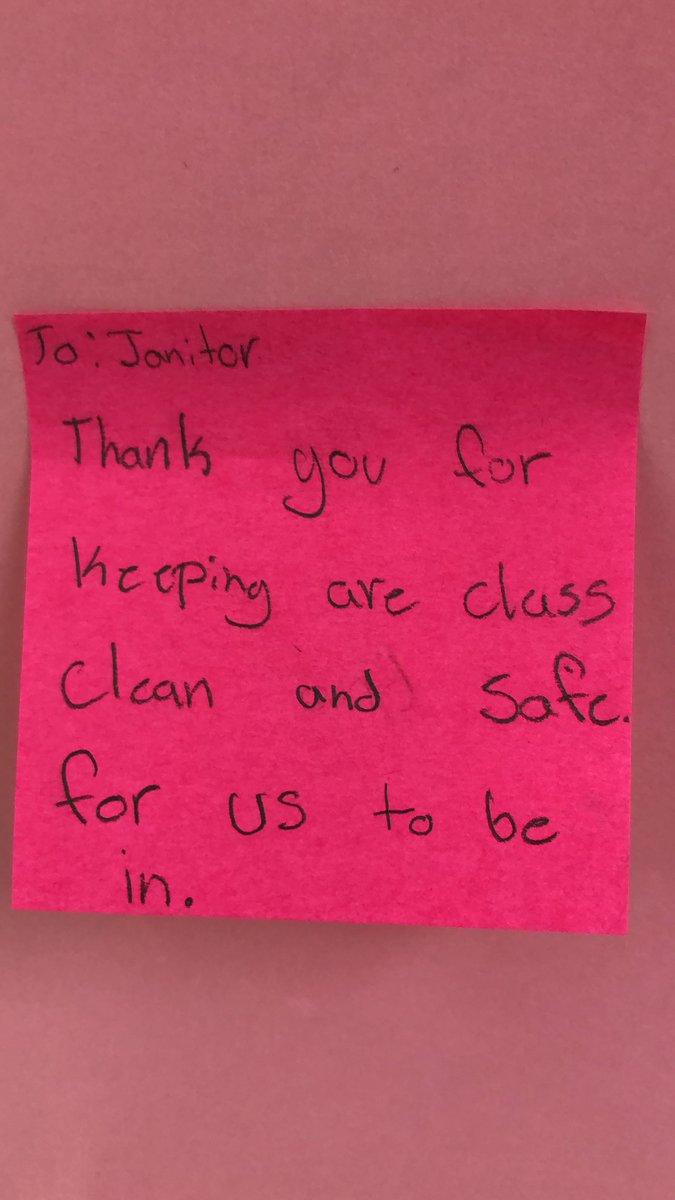 To: Janitor
Thank you for
keeping are class
clean and safe.
for us to be
in.